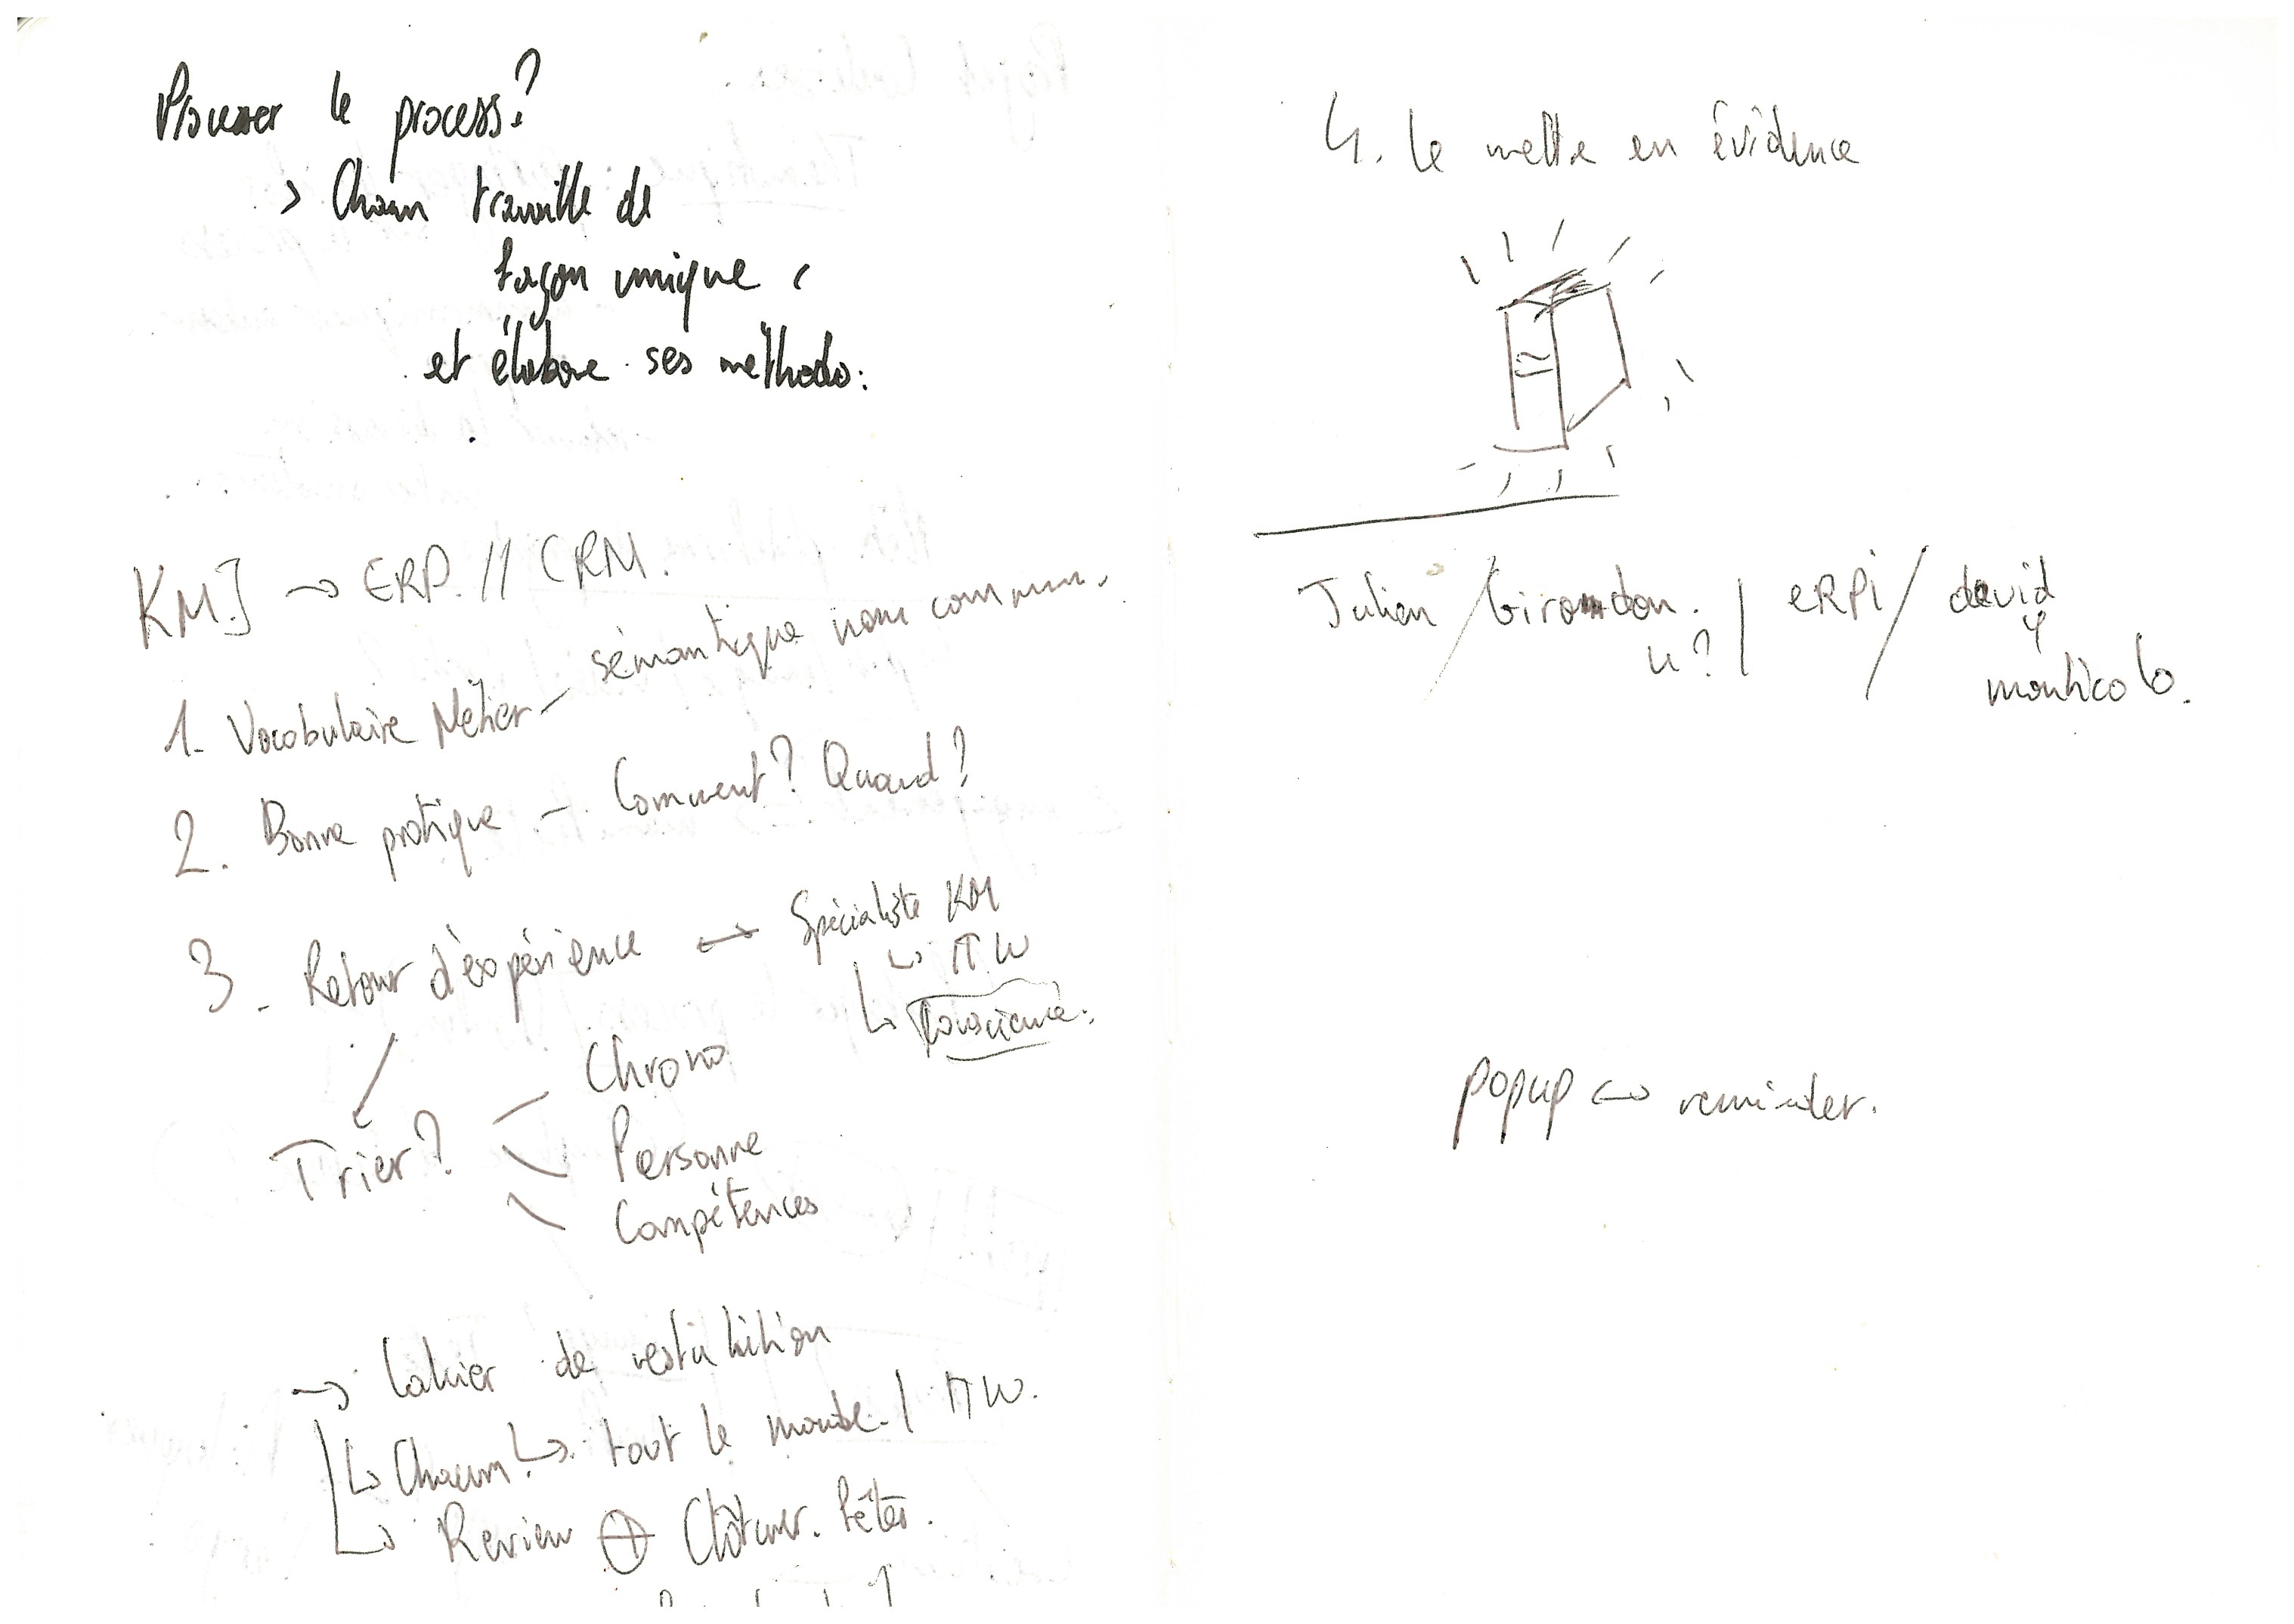 le process?
> Chacun travaille de
façon unique
et élabore ses méthodo.
KM] → ERP // CRM.
1- Vocabulaire Métier - sémantique nom commun.
2. Bonne pratique - Comment? Quand?
3 - Retour d'expérience ↔ Spécialiste KM
↳ ITW
↳ Conscience.
Trier?
Chrono
Personne
Compétences
→ Cahier de restitution
↳ Chacun ↳ tout le monde / ITW.
↳ Review ⊕ Clôturer. Fêter.
4. le mettre en évidence
Julien / Girondon. / ERPI / david
u?
monticolo.
popup ↔ reminder.